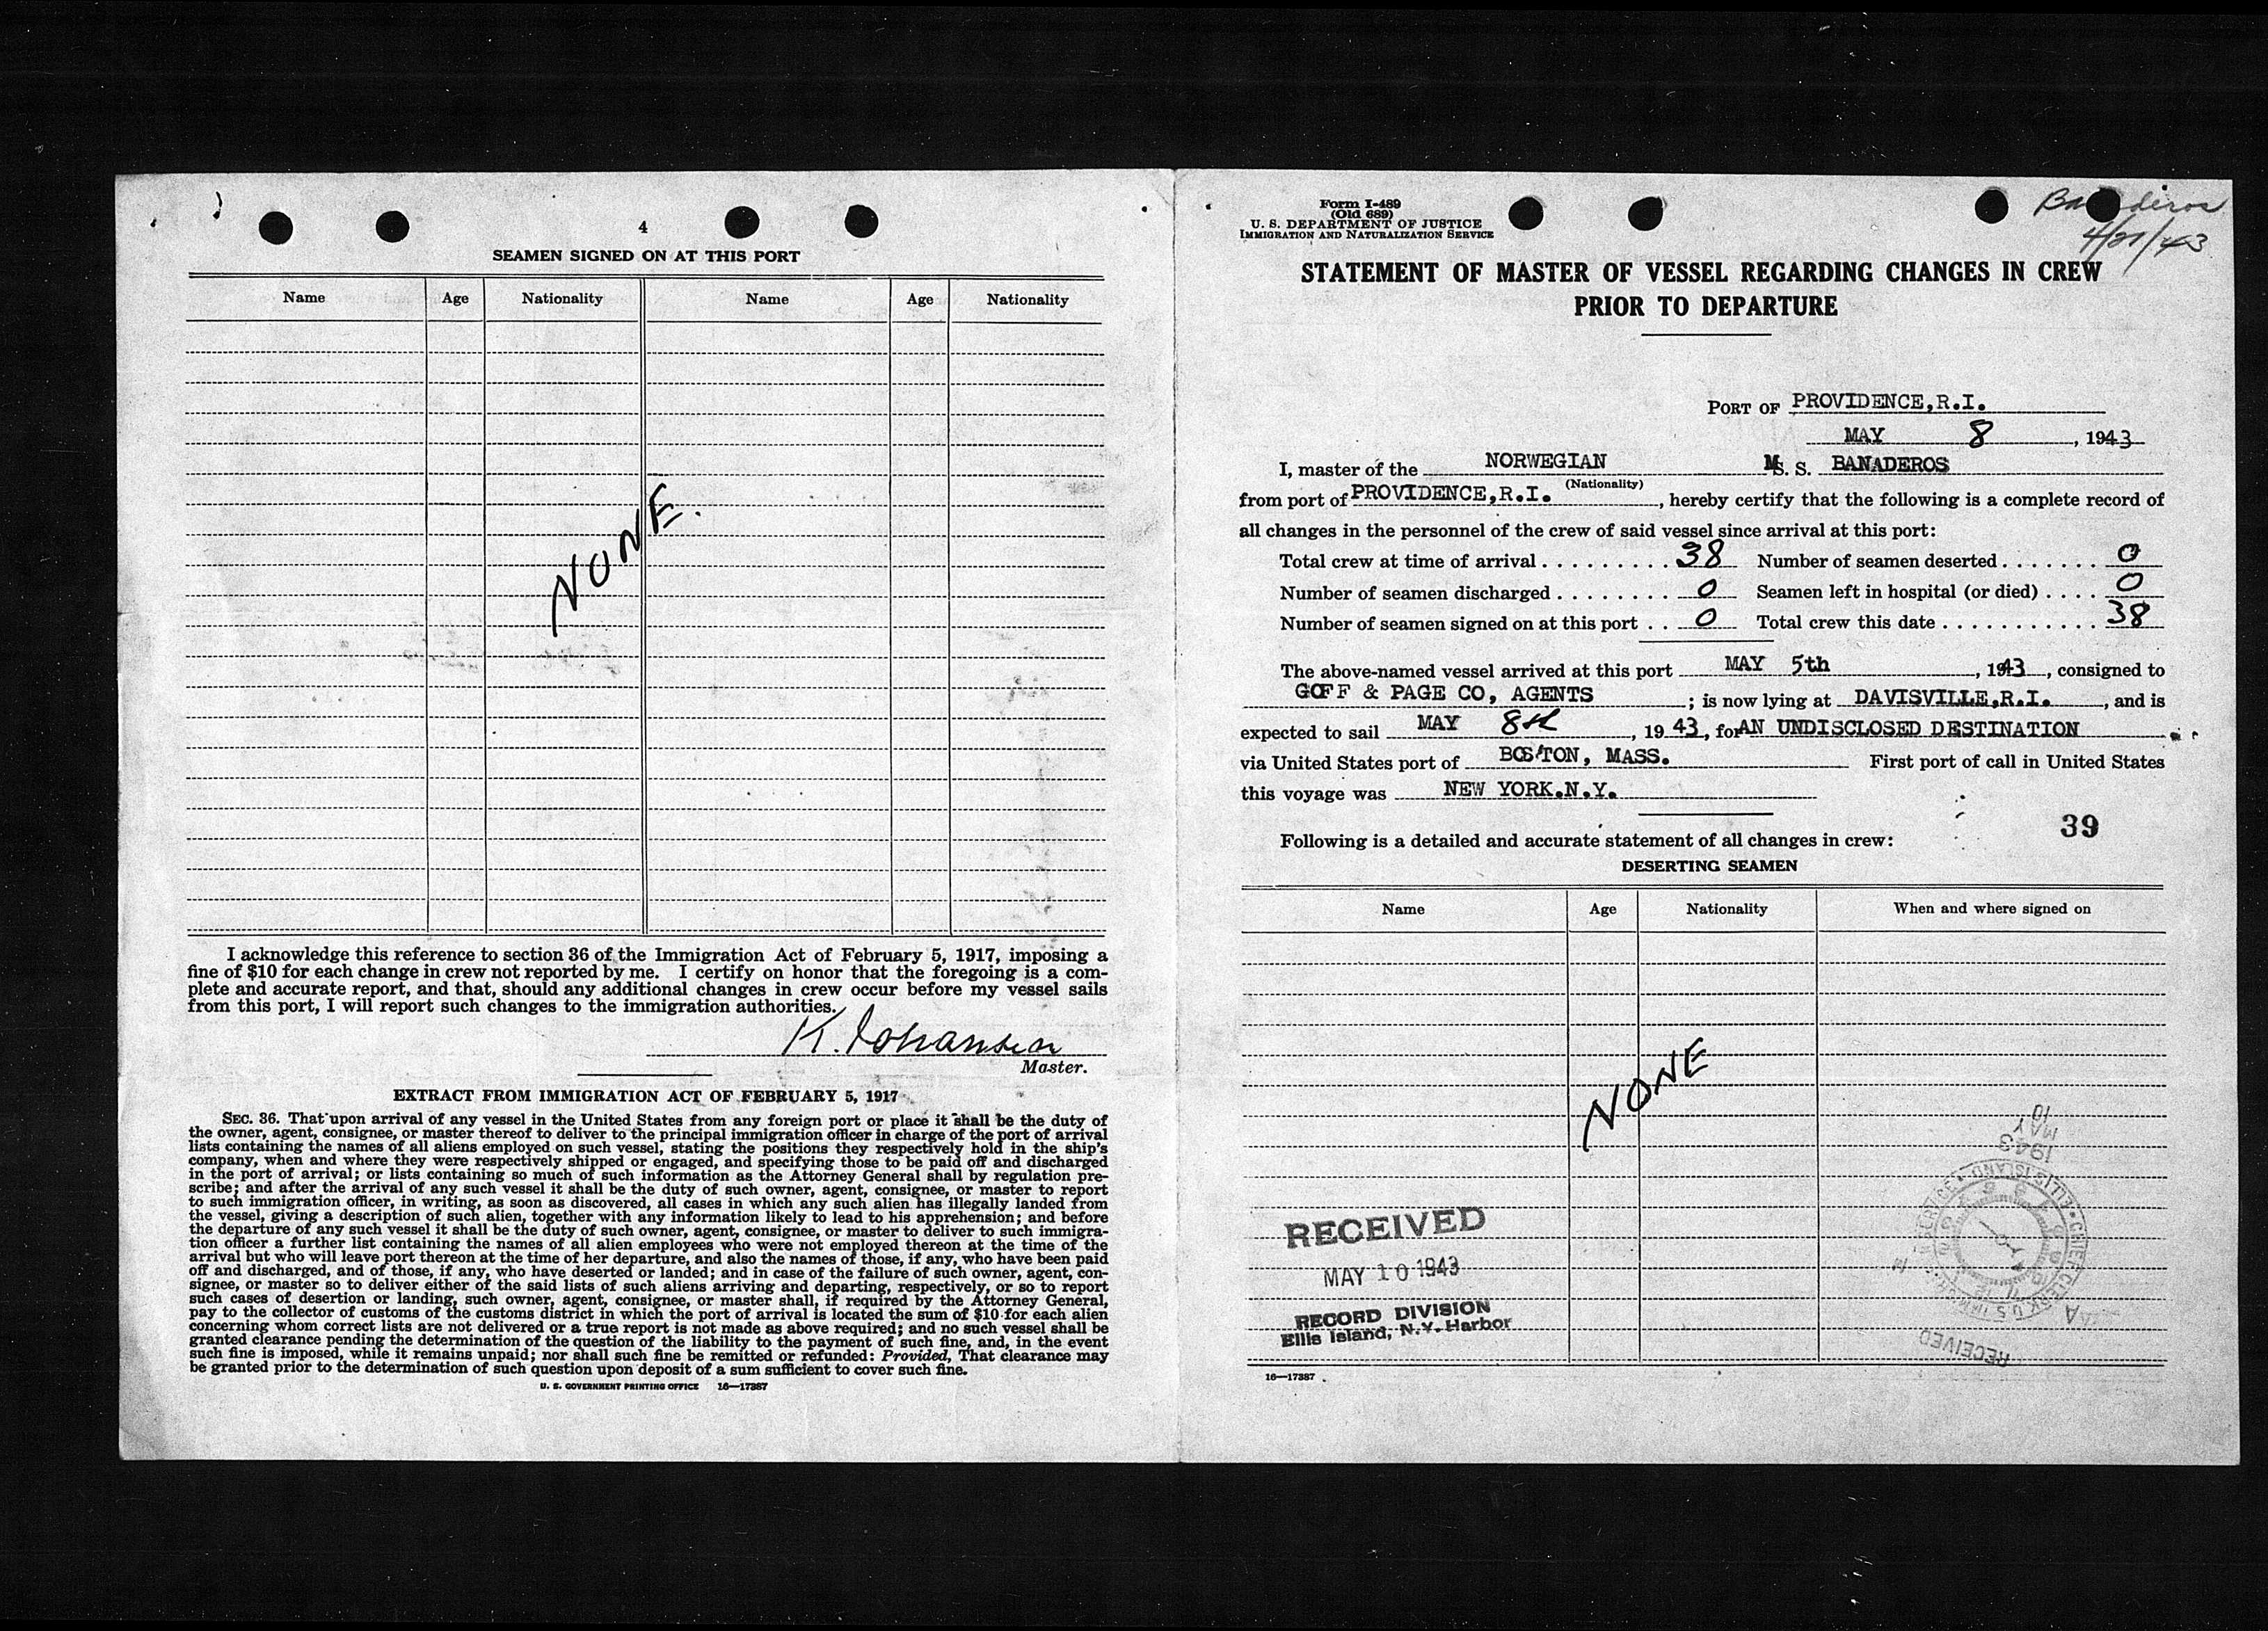 4
SEAMEN SIGNED ON AT THIS PORT
Name Age Nationality Name Age Nationality
NONE.
I acknowledge this reference to section 36 of the Immigration Act of February 5, 1917, imposing a
fine of $10 for each change in crew not reported by me. I certify on honor that the foregoing is a com-
plete and accurate report, and that, should any additional changes in crew occur before my vessel sails
from this port, I will report such changes to the immigration authorities.
K. Johansen
Master.
EXTRACT FROM IMMIGRATION ACT OF FEBRUARY 5, 1917
SEC. 36. That upon arrival of any vessel in the United States from any foreign port or place it shall be the duty of
the owner, agent, consignee, or master thereof to deliver to the principal immigration officer in charge of the port of arrival
lists containing the names of all aliens employed on such vessel, stating the positions they respectively hold in the ship's
company, when and where they were respectively shipped or engaged, and specifying those to be paid off and discharged
in the port of arrival; or lists containing so much of such information as the Attorney General shall by regulation pre-
scribe; and after the arrival of any such vessel it shall be the duty of such owner, agent, consignee, or master to report
to such immigration officer, in writing, as soon as discovered, all cases in which any such alien has illegally landed from
the vessel, giving a description of such alien, together with any information likely to lead to his apprehension; and before
the departure of any such vessel it shall be the duty of such owner, agent, consignee, or master to deliver to such immigra-
tion officer a further list containing the names of all alien employees who were not employed thereon at the time of the
arrival but who will leave port thereon at the time of her departure, and also the names of those, if any, who have been paid
off and discharged, and of those, if any, who have deserted or landed; and in case of the failure of such owner, agent, con-
signee, or master so to deliver either of the said lists of such aliens arriving and departing, respectively, or so to report
such cases of desertion or landing, such owner, agent, consignee, or master shall, if required by the Attorney General,
pay to the collector of customs of the customs district in which the port of arrival is located the sum of $10 for each alien
concerning whom correct lists are not delivered or a true report is not made as above required; and no such vessel shall be
granted clearance pending the determination of the question of the liability to the payment of such fine, and, in the event
such fine is imposed, while it remains unpaid; nor shall such fine be remitted or refunded: Provided, That clearance may
be granted prior to the determination of such question upon deposit of a sum sufficient to cover such fine.
U. S. GOVERNMENT PRINTING OFFICE 16—17387
Form I-489
(Old 689)
U. S. DEPARTMENT OF JUSTICE
IMMIGRATION AND NATURALIZATION SERVICE
STATEMENT OF MASTER OF VESSEL REGARDING CHANGES IN CREW
PRIOR TO DEPARTURE
PORT OF PROVIDENCE,R.I.
MAY 8, 1943
I, master of the NORWEGIAN M.S. BANADEROS
(Nationality)
from port of PROVIDENCE,R.I., hereby certify that the following is a complete record of
all changes in the personnel of the crew of said vessel since arrival at this port:
Total crew at time of arrival 38 Number of seamen deserted 0
Number of seamen discharged 0 Seamen left in hospital (or died) 0
Number of seamen signed on at this port 0 Total crew this date 38
The above-named vessel arrived at this port MAY 5th, 1943, consigned to
GOFF & PAGE CO, AGENTS; is now lying at DAVISVILLE,R.I., and is
expected to sail MAY 8th, 1943, for AN UNDISCLOSED DESTINATION
via United States port of BOSTON, MASS. First port of call in United States
this voyage was NEW YORK.N.Y.
39
Following is a detailed and accurate statement of all changes in crew:
DESERTING SEAMEN
Name Age Nationality When and where signed on
NONE
RECEIVED
MAY 10 1943
RECORD DIVISION
Ellis Island, N.Y. Harbor
1943
MAY
10
RECEIVED
16—17387